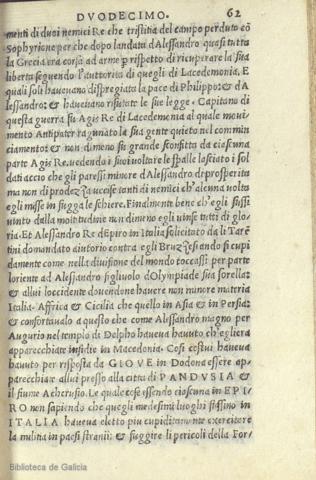 DVODECIMO. 62
menti di duoi nemici Re che tristitia del campo perduto cõ
Sophyrione per che dopo landata d'Alessandro quasi tutta
la Grecia era corsa ad arme p rispetto di ricuperare la sua
liberta seguendo l'auttorita di quegli di Lacedemonia. E
quali soli haueuano dispregiata la pace di Philippo: & d'A
lessandro: & haueuano rifiutate le sue legge. Capitano di
questa guerra fu Agis Re di Lacedemonia al quale moui-
mento Antipater ragunato la sua gente quieto nel commin
ciamento: & non dimeno fu grande sconfitta da ciascuna
parte Agis Re. uedendo i suoi voltare le spalle lasciato i sol
dati accio che gli paressi minore d'Alessandro di prosperita
ma non di prodezza uccise tanti di nemici ch'alcuna volta
egli misse in fugga le schiere. Finalmente bene ch'egli fussi
uinto dalla moltitudine non dimeno egli uinse tutti di glo-
ria. Et Alessandro Re d'Epiro in Italia solicitato da li Tarē
tini domandato aiutorio contra egli Bruzzesi ando si cupi
damente come nella diuisione del mondo toccassi per parte
loriente ad Alessandro figliuolo d'Olympiade sua sorella:
& allui loccidente douendone hauere non minore materia
Italia. Affrica & Cicilia che quello in Asia & in Persia:
& confortaualo a questo che come Alessandro magno per
Augurio nel tempio di Delpho haueua hauuto ch'egli era
apparecchiate insidie in Macedonia. Cosi costui haueua
hauuto per risposta da GIOVE in Dodona essere ap-
parecchiate allui presso alla citta di PANDVSIA &
il fiume Acherusio. Le quale cose essendo ciascuna in EPI
RO non sapiendo che quegli medesimi luoghi fussino in
ITALIA haueua eletto piu cupiditamente exercitare
la militia in paesi stranii: & fuggire li pericoli della For/
Biblioteca de Galicia